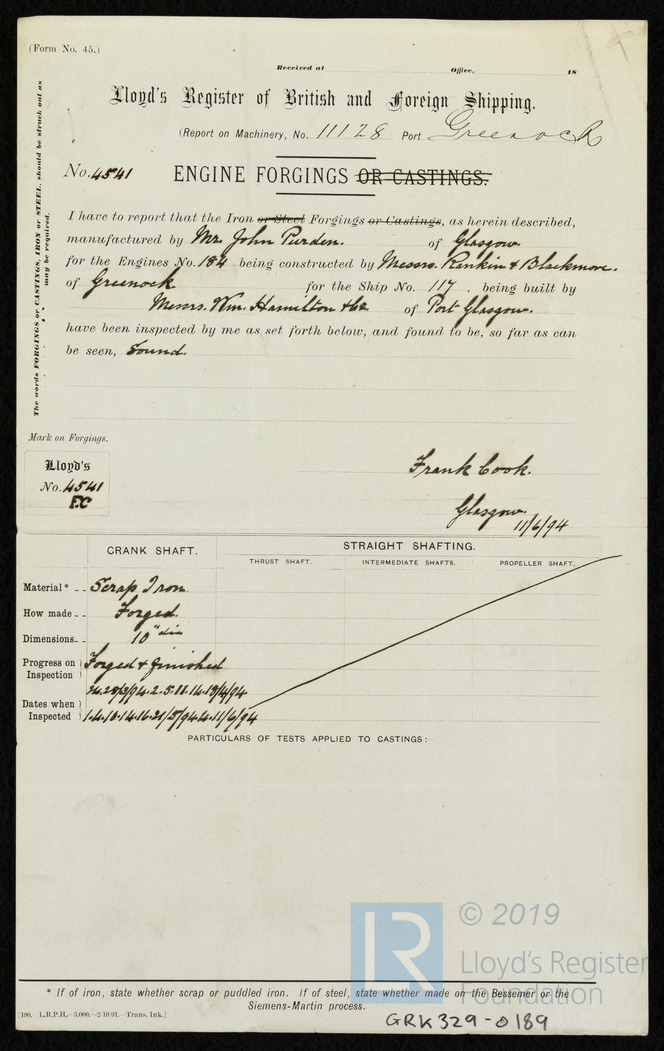 (Form No. 45.)
Received at Office, 18
Lloyd's Register of British and Foreign Shipping.
(Report on Machinery, No. 11128 Port Greenock
No. 4541 ENGINE FORGINGS OR CASTINGS.
The words FORGINGS or CASTINGS, IRON or STEEL, should be struck out as
may be required.
I have to report that the Iron or Steel Forgings or Castings, as herein described,
manufactured by Mr. John Purden. of Glasgow.
for the Engines No. 184 being constructed by Messrs. Rankin & Blackmore.
of Greenock for the Ship No. 117. being built by
Messrs. Wm. Hamilton & Co of Port Glasgow.
have been inspected by me as set forth below, and found to be, so far as can
be seen, Sound.
Mark on Forgings.
Lloyd's
No. 4541
F.C
Frank Cook.
Glasgow.
11/6/94
CRANK SHAFT. STRAIGHT SHAFTING.
THRUST SHAFT. INTERMEDIATE SHAFTS. PROPELLER SHAFT.
Material* - - Scrap Iron
How made - - Forged.
Dimensions - - 10" dia
Progress on Inspection Forged & finished
Dates when Inspected
1.4.10.14.16.21/5/94 4.11/6/94
PARTICULARS OF TESTS APPLIED TO CASTINGS:—
* If of iron, state whether scrap or puddled iron. If of steel, state whether made on the Bessemer or the
Siemens-Martin process.
[190. -L.R.P.H.-3,000.-2/10/91.-Trans. Ink.]
GRK329-0189
LR
© 2019
Lloyd's Register
Foundation